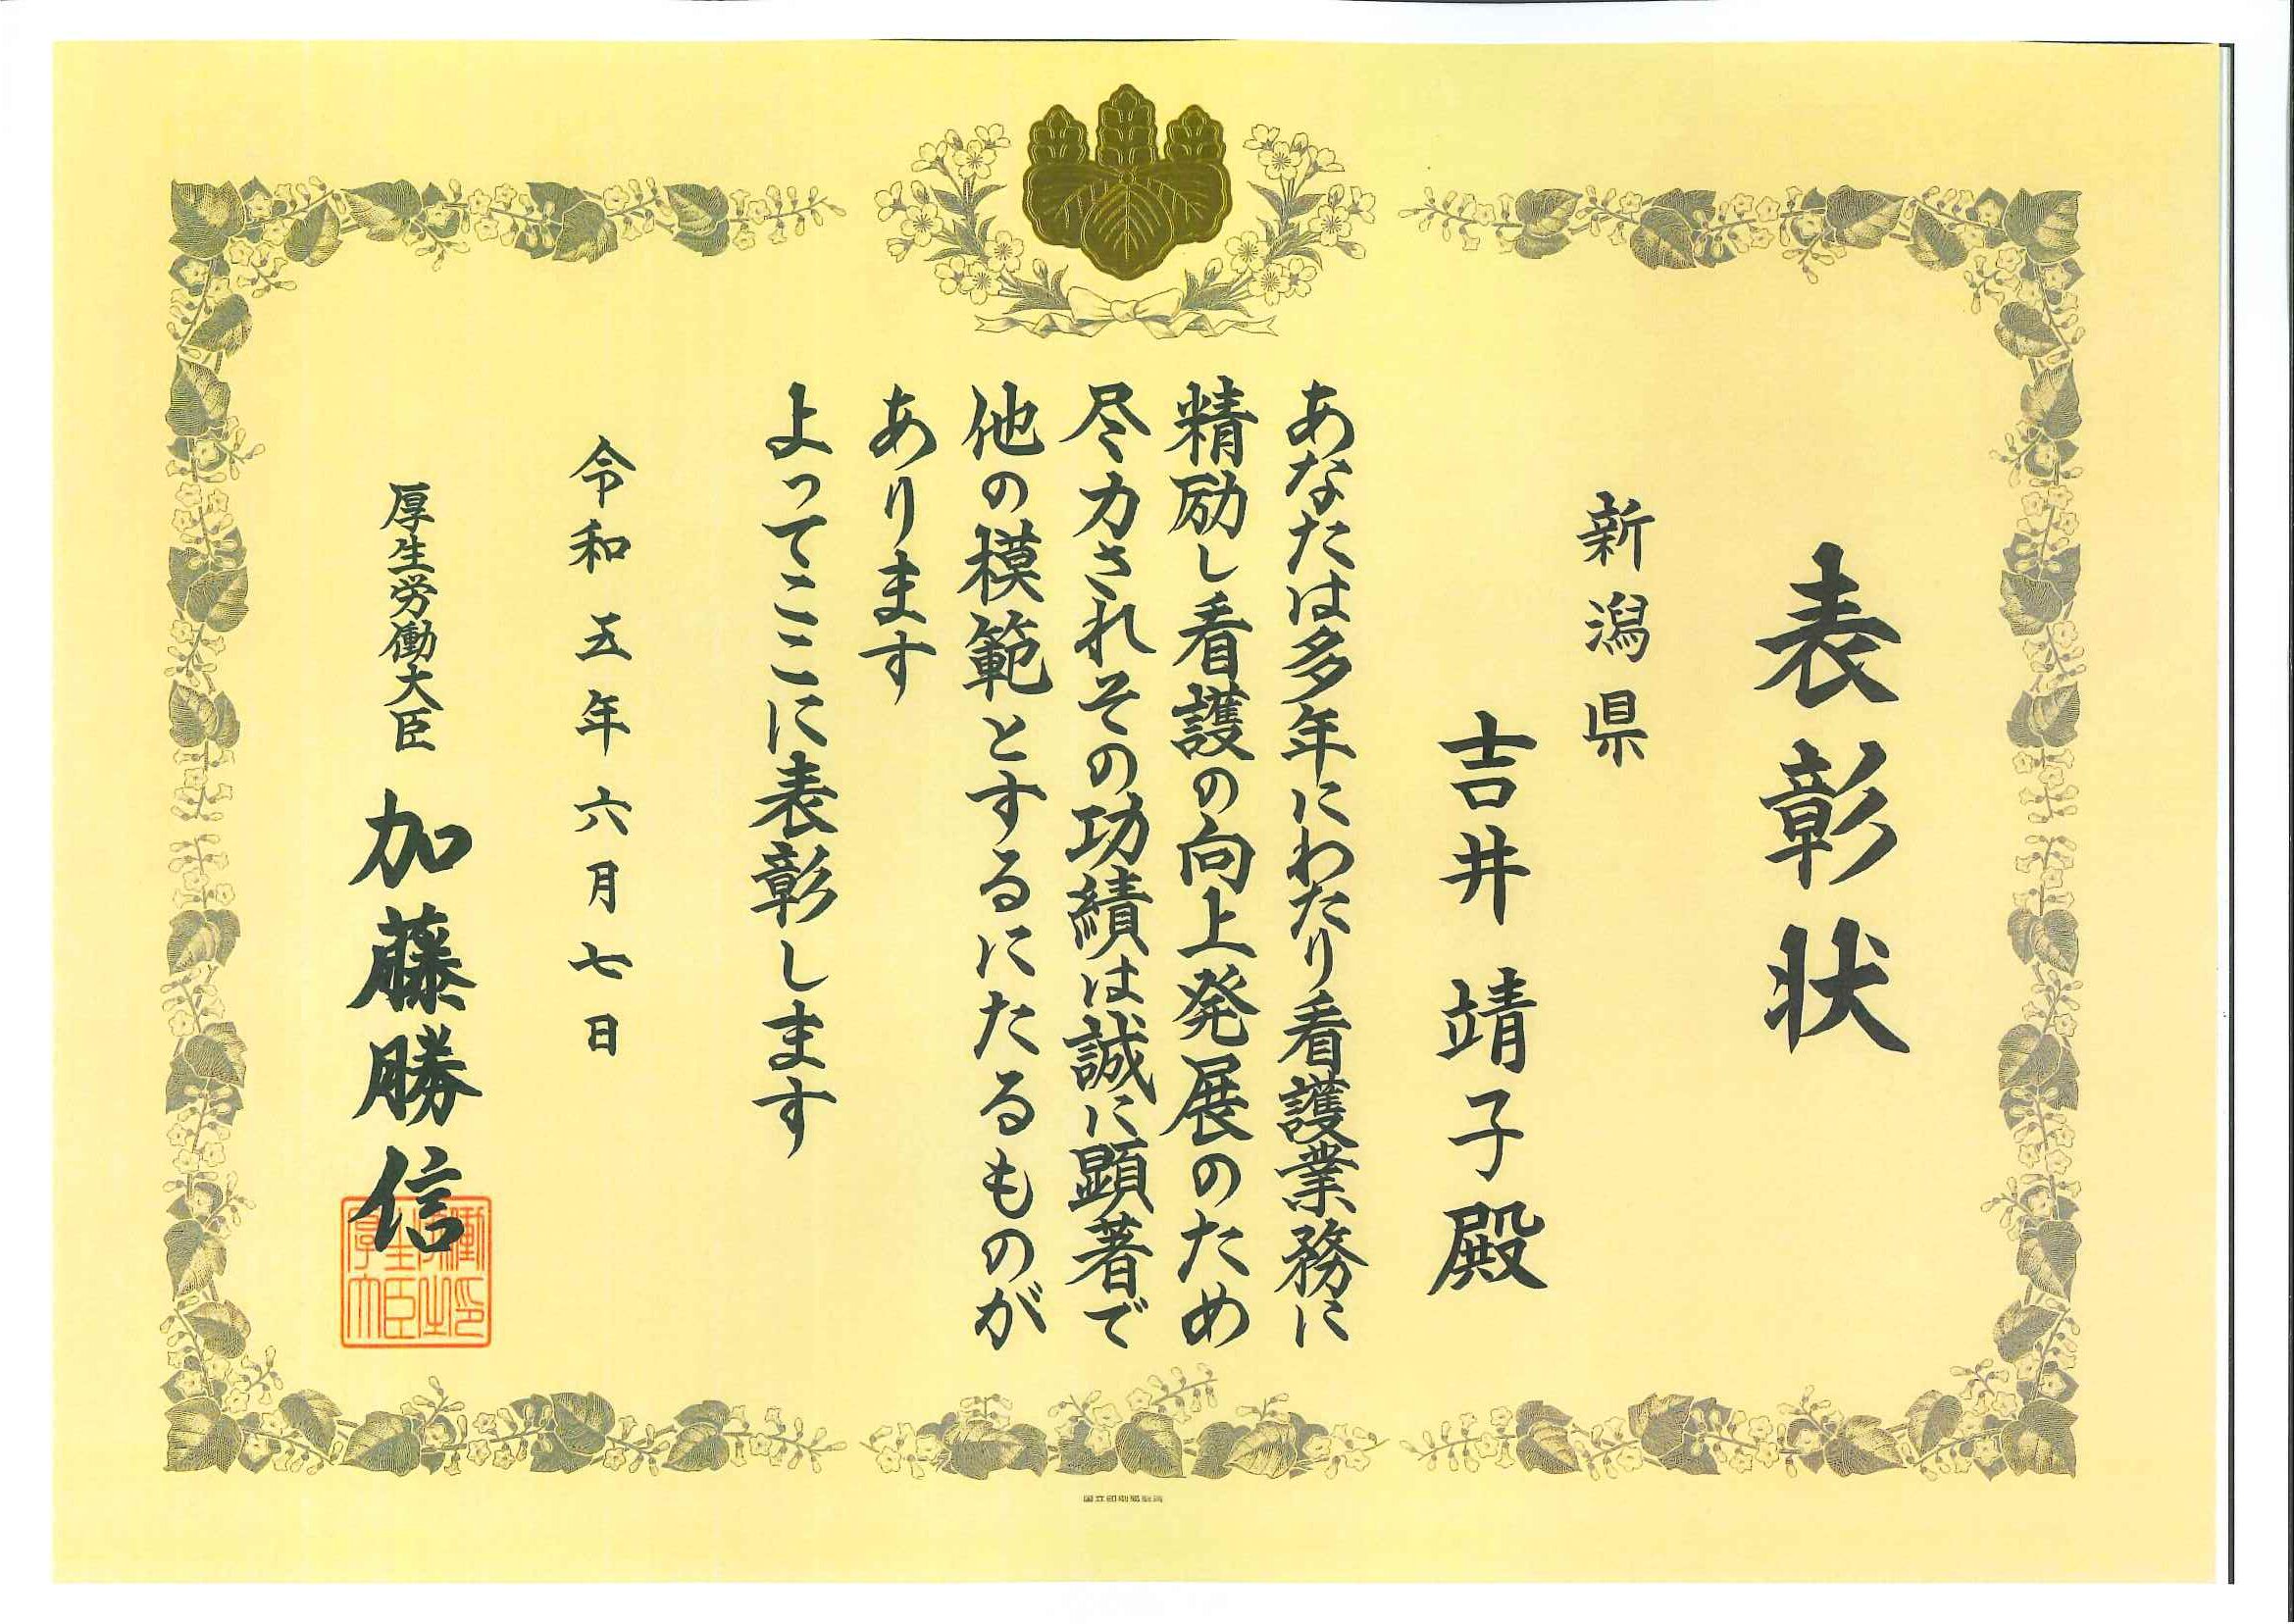 表彰状
新潟県
吉井靖子殿
あなたは多年にわたり看護業務に
精励し看護の向上発展のため
尽力されその功績は誠に顕著で
他の模範とするにたるものが
あります
よってここに表彰します
令和五年六月七日
厚生労働大臣 加藤勝信